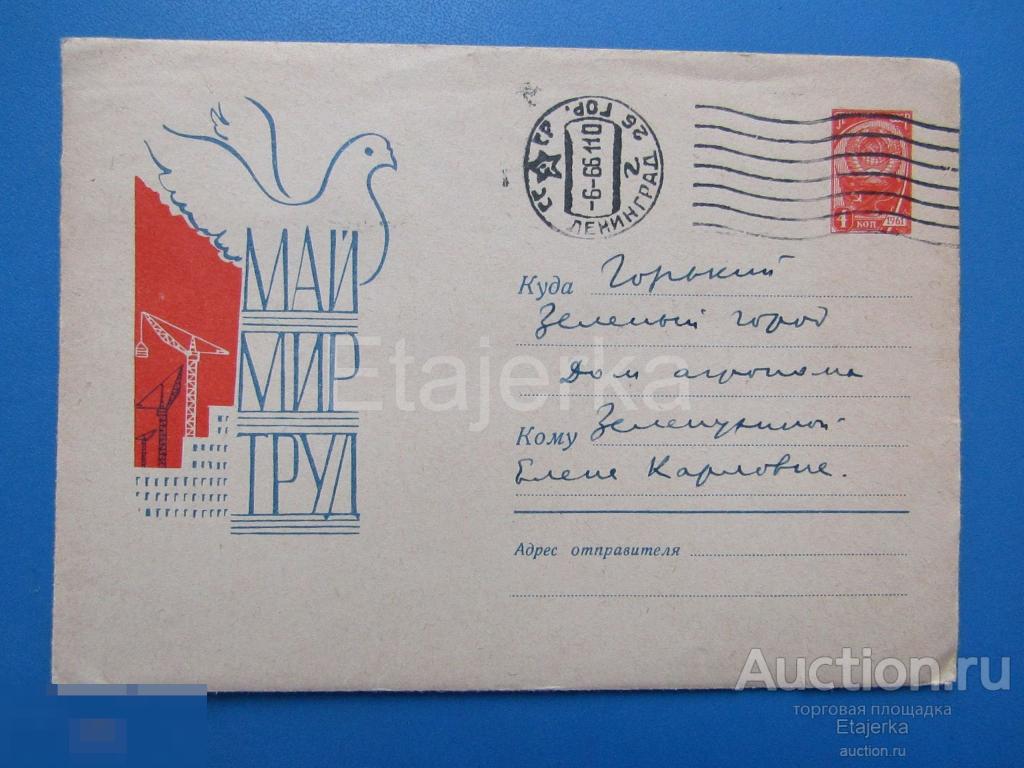 МАЙ
МИР
ТРУД
СССР
ЛЕНИНГРАД 2
26 ГОР.
-6-66.11 0
4 КОП
1961
Куда Горький
Зеленый город
Дом агронома
Кому
Елене Карловне.
Адрес отправителя
Etajerka
Auction.ru
торговая площадка
Etajerka
auction.ru